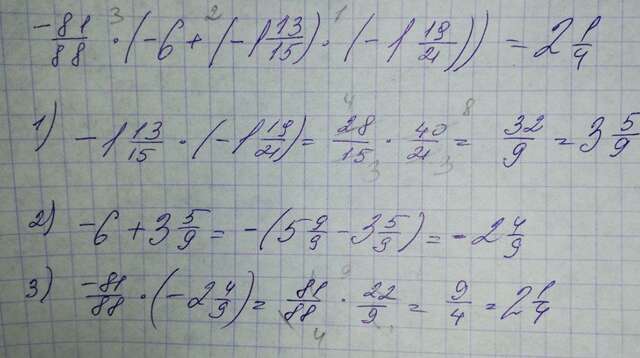 -81/88 · (-6 + (-1 13/15) · (-1 19/21)) = 2 1/4
1) -1 13/15 · (-1 19/21) = 28/15 · 40/21 = 32/9 = 3 5/9
2) -6 + 3 5/9 = -(5 9/9 - 3 5/9) = -2 4/9
3) -81/88 · (-2 4/9) = 81/88 · 22/9 = 9/4 = 2 1/4